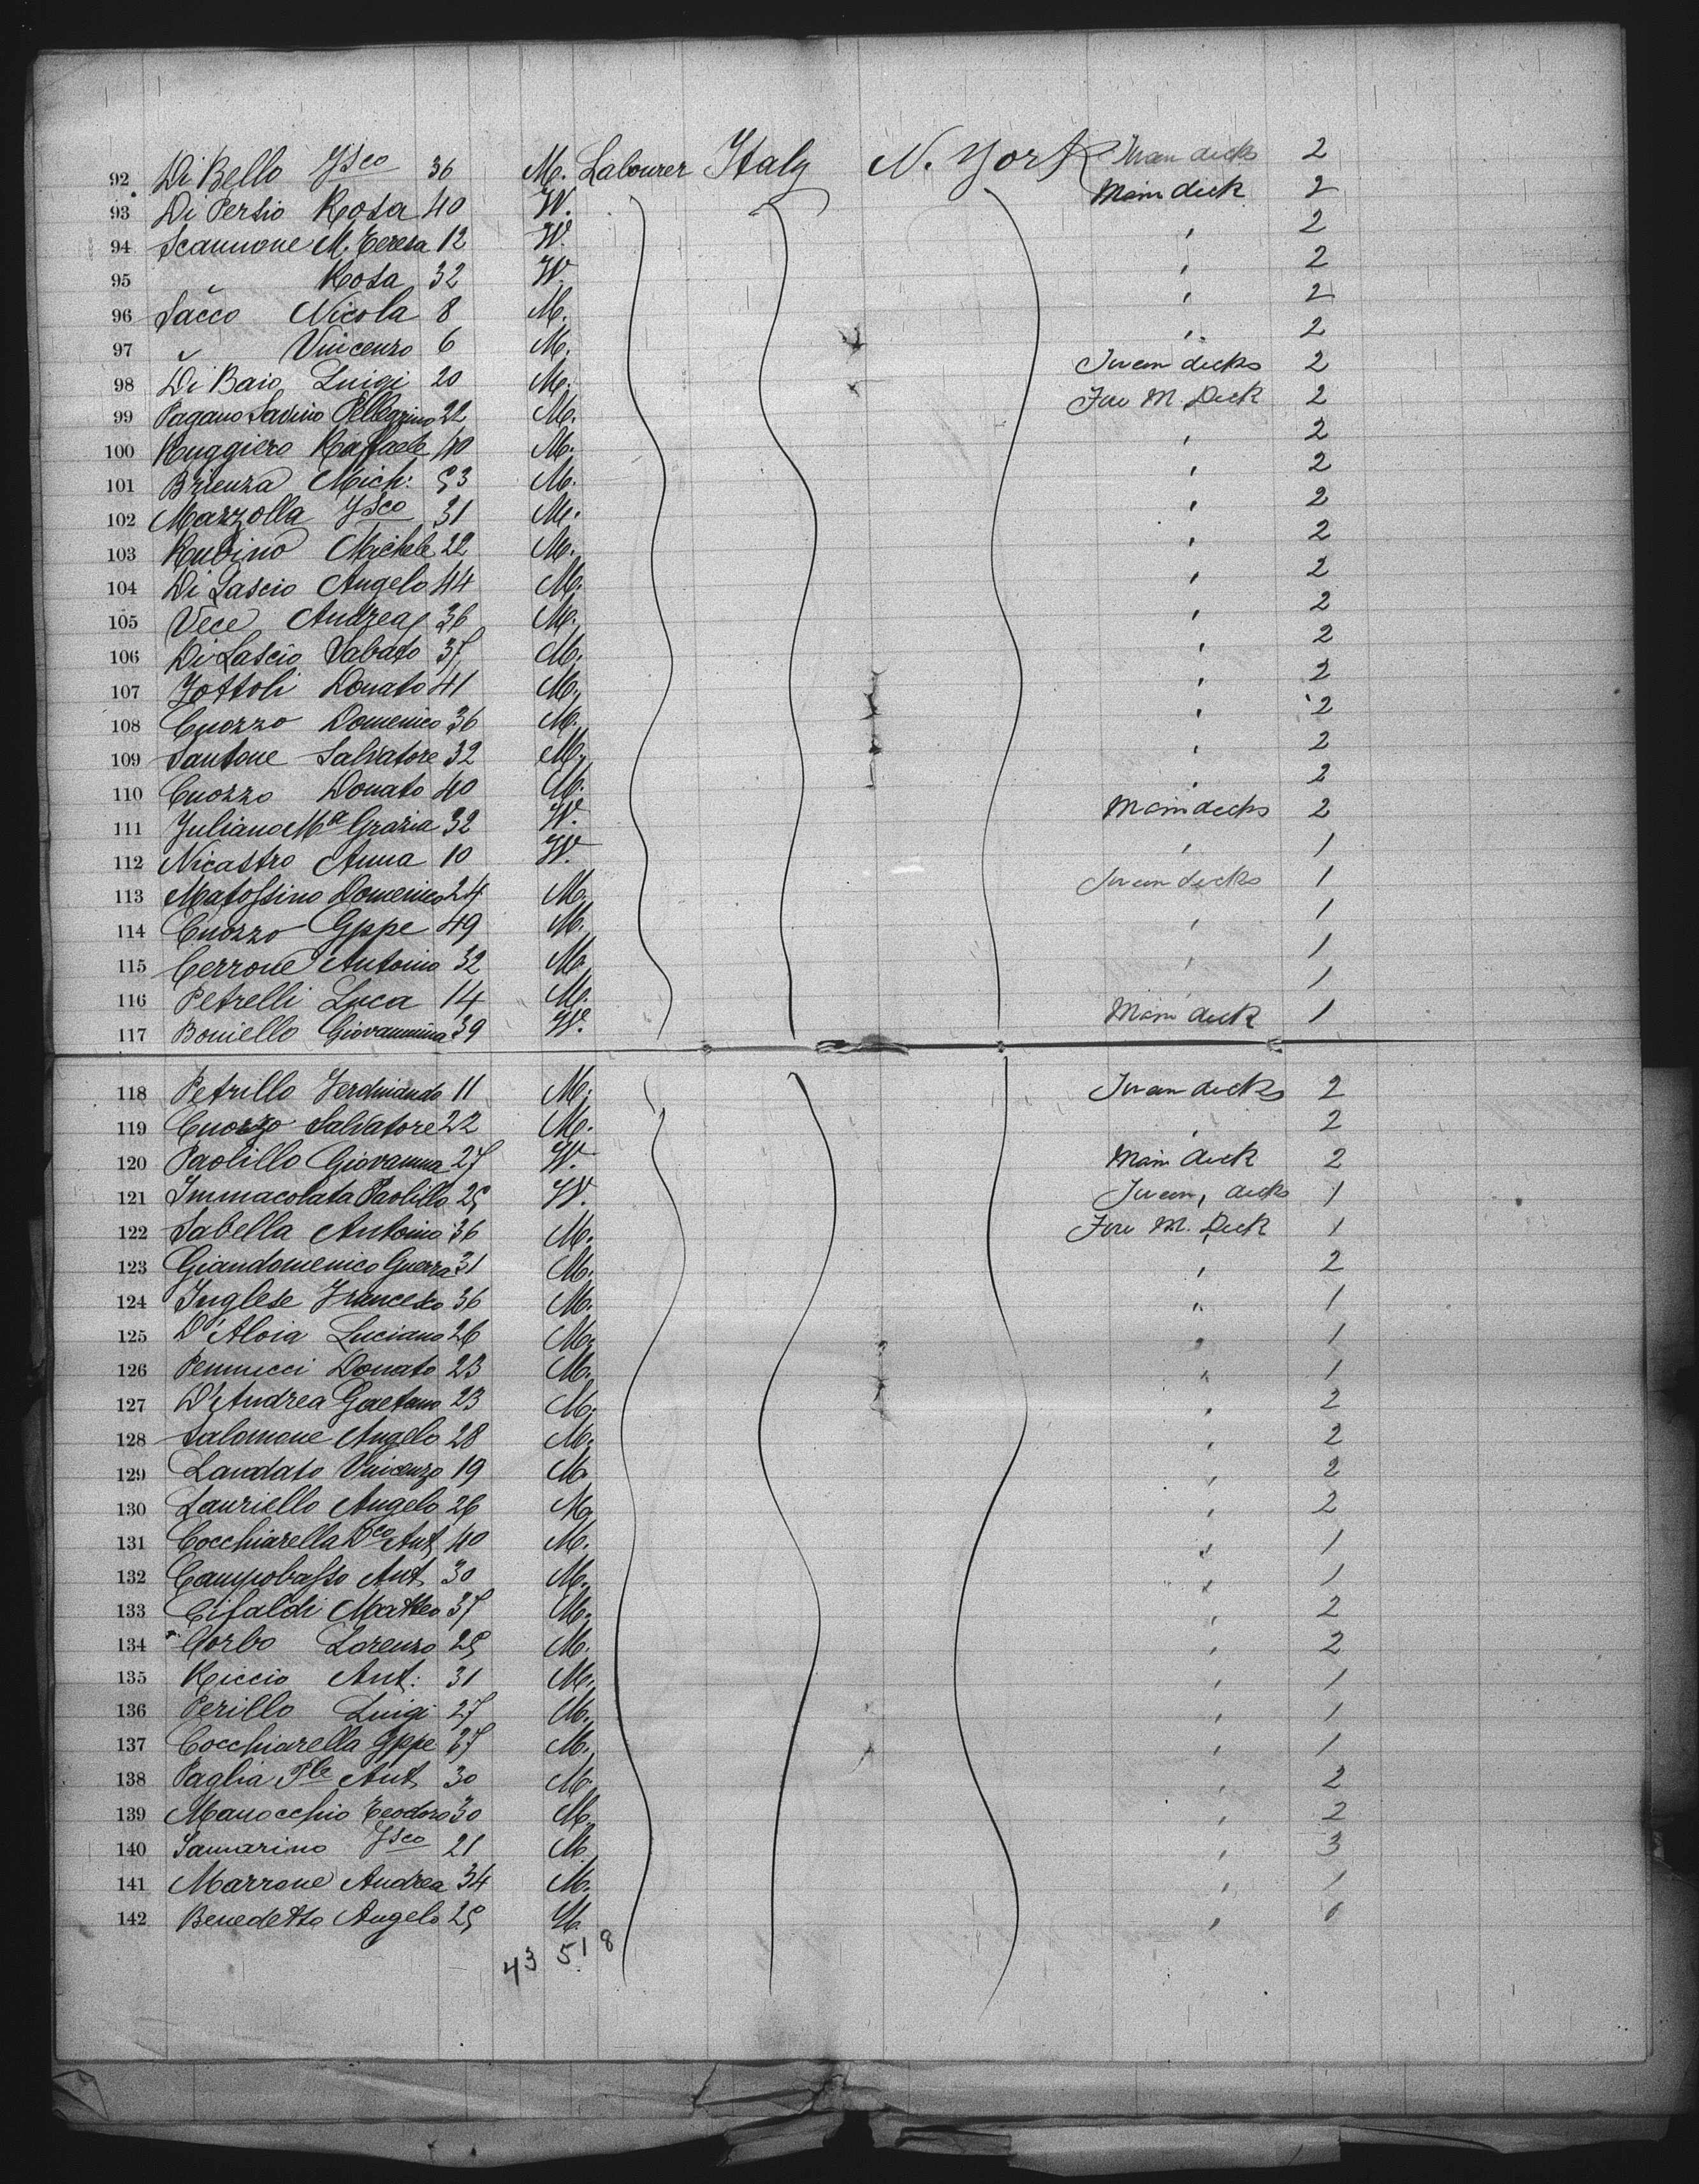 92 Di Bello Fsco 36 M. Labourer Italy N. York Tween decks 2
93 Di Persio Rosa 40 W. Main deck 2
94 Scannone M. Teresa 12 W. " 2
95 " Rosa 32 W. " 2
96 Sacco Nicola 8 M. " 2
97 " Vincenzo 6 M. " 2
98 Di Baio Luigi 20 M. Tween decks 2
99 Pagano Savino Pellegrino 22 M. Fore M. Deck 2
100 Ruggiero Raffaele 40 M. " 2
101 Brienza Mich: 53 M. " 2
102 Mazzolla Fsco 31 M. " 2
103 Rubino Michele 22 M. " 2
104 Di Lascio Angelo 44 M. " 2
105 Vece Andrea 36 M. " 2
106 Di Lascio Sabato 37 M. " 2
107 Zottoli Donato 41 M. " 2
108 Cuozzo Domenico 36 M. " 2
109 Santone Salvatore 32 M. " 2
110 Cuozzo Donato 40 M. " 2
111 Juliano Ma Grazia 32 W. Main decks 2
112 Nicastro Anna 10 W. " 1
113 Matossino Domenico 24 M. Tween decks 1
114 Cuozzo Gppe 49 M. " 1
115 Cerrone Antonio 32 M. " 1
116 Petrelli Luca 14 M. " 1
117 Boniello Giovannina 39 W. Main deck 1
118 Petrillo Ferdinando 11 M. Tween decks 2
119 Cuozzo Salvatore 22 M. " 2
120 Paolillo Giovanna 27 W. Main deck 2
121 Immacolata Paolillo 25 W. Tween decks 1
122 Sabella Antonio 36 M. Fore M. Deck 1
123 Giandomenico Guerra 31 M. " 2
124 Inglese Francesco 36 M. " 1
125 D'Aloia Luciano 26 M. " 1
126 Pennucci Donato 23 M. " 1
127 D'Andrea Gaetano 23 M. " 2
128 Salomone Angelo 28 M. " 2
129 Laudato Vincenzo 19 M. " 2
130 Lauriello Angelo 26 M. " 2
131 Cocchiarella Dco Ant 40 M. " 1
132 Campobasso Ant 30 M. " 1
133 Cifaldi Matteo 37 M. " 2
134 Corbo Lorenzo 25 M. " 2
135 Riccio Ant: 31 M. " 1
136 Perillo Luigi 27 M. " 1
137 Cocchiarella Gppe 37 M. " 1
138 Paglia Ple Ant 30 M. " 2
139 Manocchio Teodoro 30 M. " 2
140 Sanmarino Fsco 21 M. " 3
141 Marrone Andrea 34 M. " 1
142 Benedetto Angelo 25 M. "
43 51 8